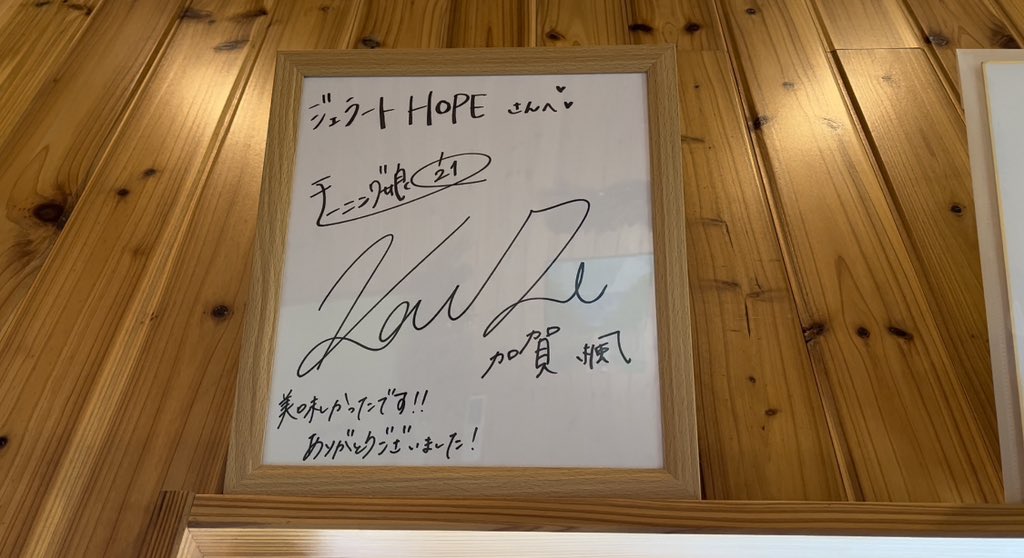 ジェラート HOPE さんへ♥♥
モーニング娘。'21
加賀 楓
美味しかったです!!
ありがとうございました!